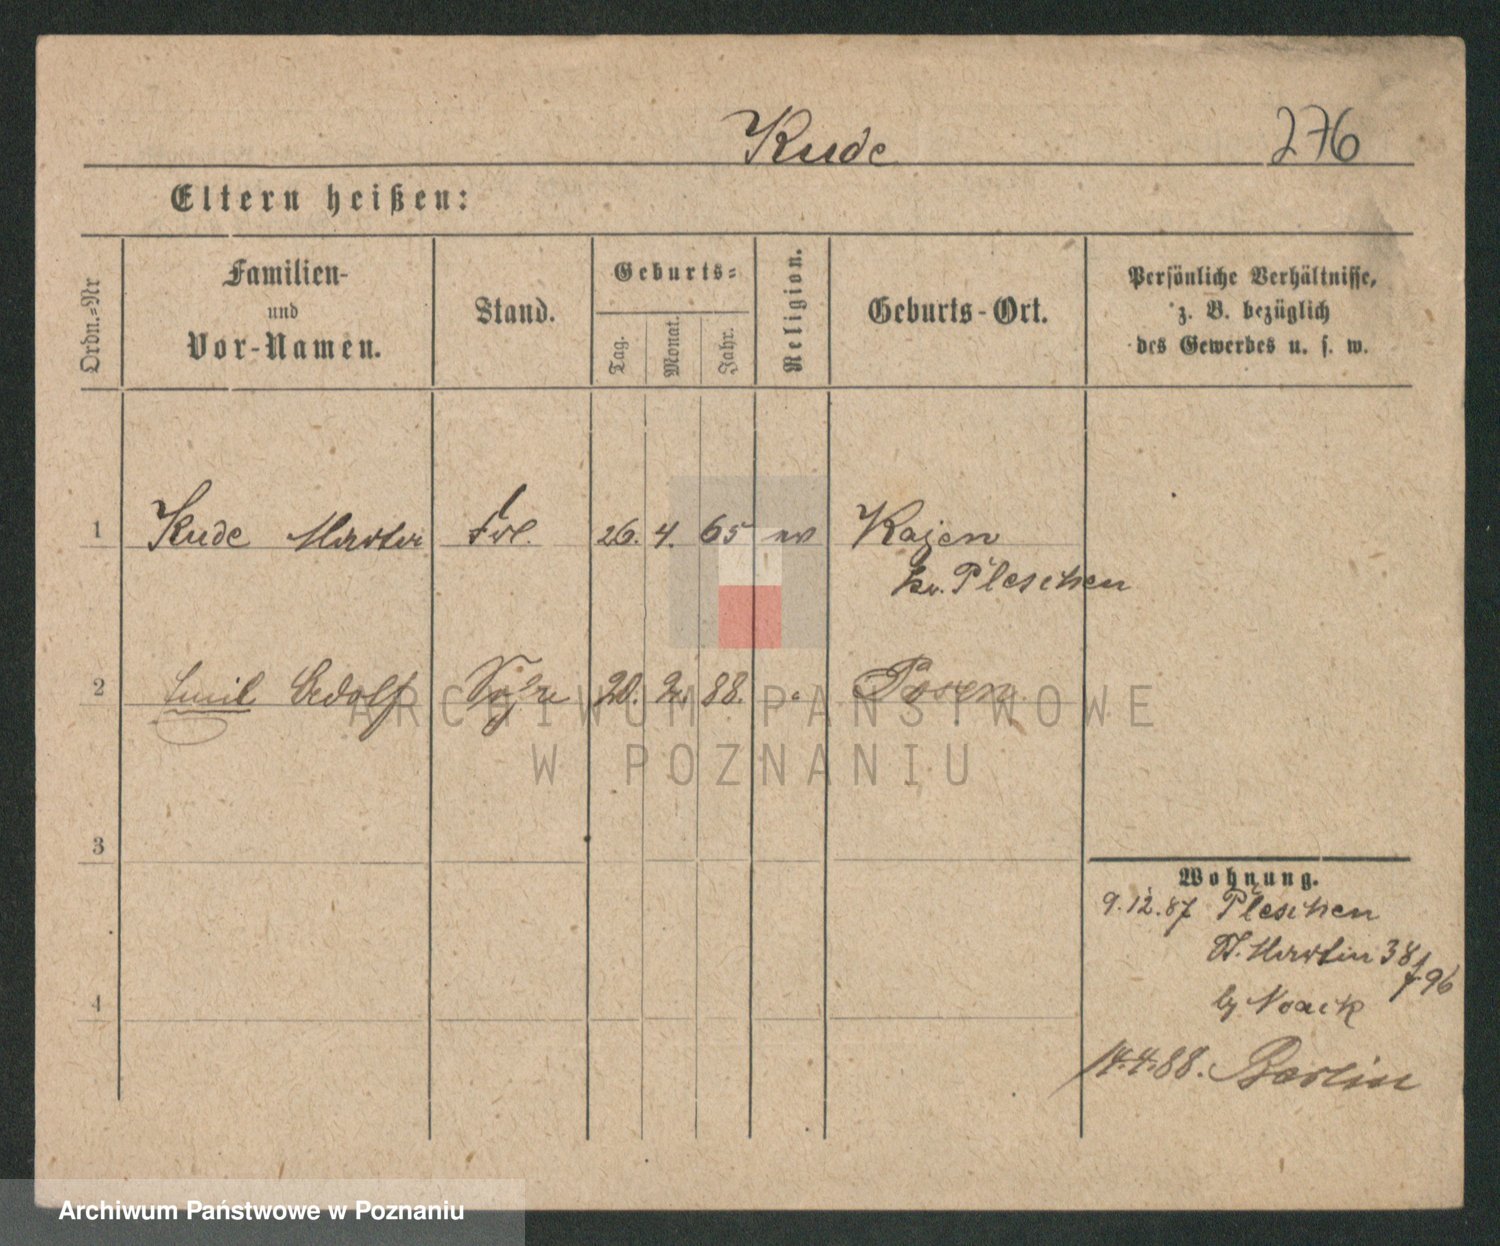 Kude 276
Eltern heißen:
Ordn.=Nr
Familien-
und
Vor-Namen.
Stand.
Geburts=
Tag.
Monat.
Jahr.
Religion.
Geburts-Ort.
Persönliche Verhältnisse,
z. B. bezüglich
des Gewerbes u. s. w.
1 Kude Martha Frl. 26. 4. 65 ev Kajen
kr. Pleschen
2 Emil Adolf Sohn 2. 88. Posen
3
Wohnung.
9.12.87 Pleschen
St. Martin 38
496
by Noack
4
14.4.88. Berlin
ARCHIWUM PAŃSTWOWE
W POZNANIU
Archiwum Państwowe w Poznaniu